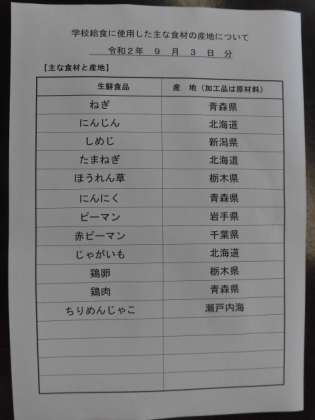 学校給食に使用した主な食材の産地について
令和２年 ９ 月 ３ 日 分
【主な食材と産地】
生鮮食品 産 地（加工品は原材料）
ねぎ 青森県
にんじん 北海道
しめじ 新潟県
たまねぎ 北海道
ほうれん草 栃木県
にんにく 青森県
ピーマン 岩手県
赤ピーマン 千葉県
じゃがいも 北海道
鶏卵 栃木県
鶏肉 青森県
ちりめんじゃこ 瀬戸内海